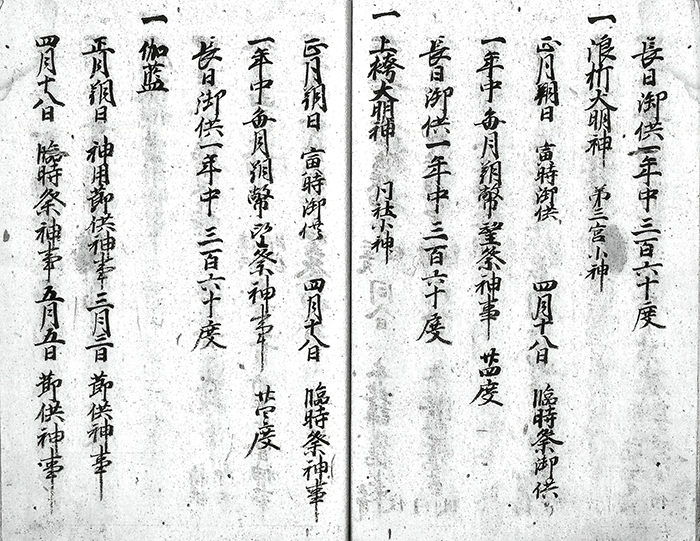 長日御供一年中三百六十度
一 浪折大明神 第三宮小神
正月朔日 當時御供 四月十八日 臨時祭御供
一年中毎月朔幣望祭神事 廿四度
長日御供一年中三百六十度
一 上袴大明神 同社小神
正月朔日 當時御供 四月十八日 臨時祭神事
一年中毎月朔幣望祭神事 廿四度
長日御供一年中三百六十度
一 伽藍
正月朔日 神用節供神事 三月三日 節供神事
四月十八日 臨時祭神事 五月五日 節供神事